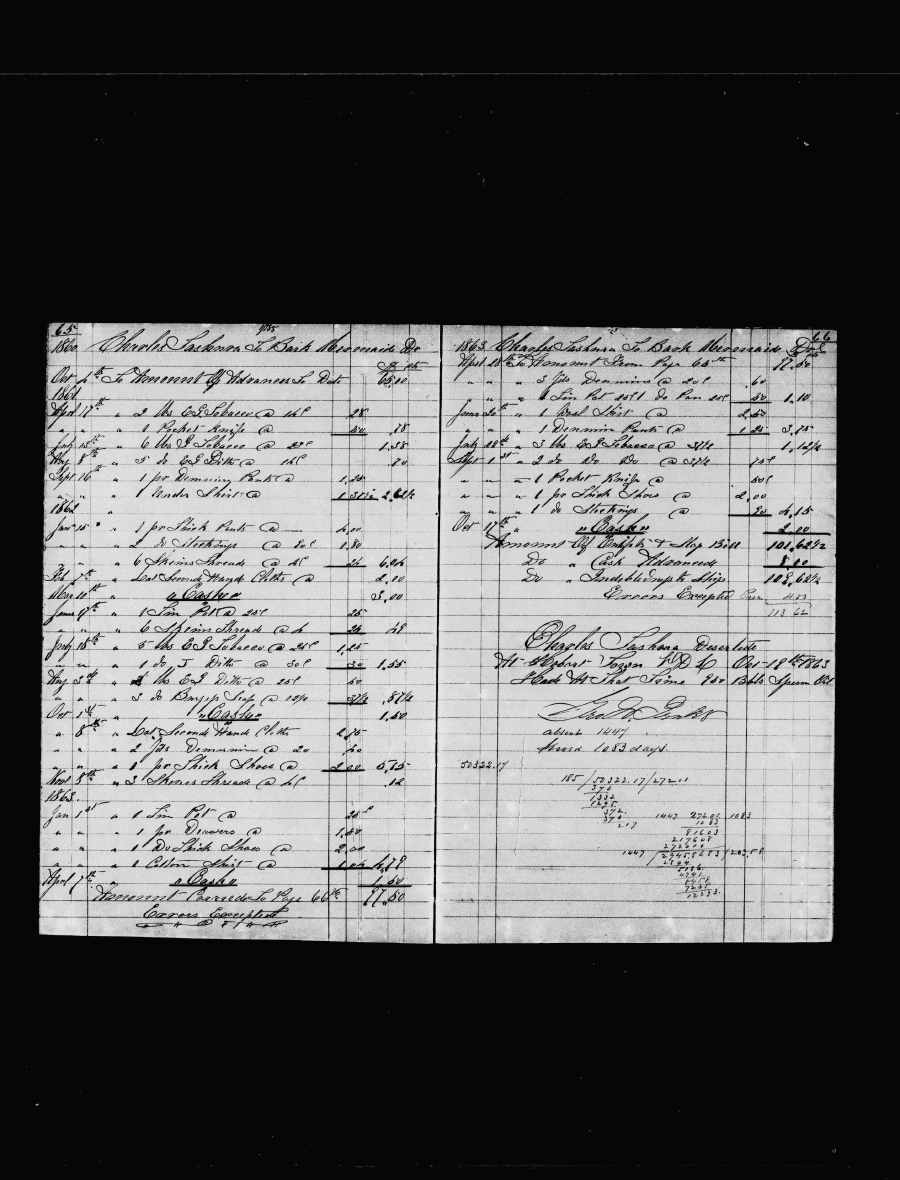 65
1860 Charles To Bark Mermaid Dr
Oct 4th To Amount Of Advances To Date 65.00
1861
Aprl 17th " 2 lbs E G Tobacco @ 14c 28
" " " 1 Pocket Knife @ 50 .78
July 13th " 6 lbs Tobacco @ 23c 1.38
Aug 8th " 5 do E G Ditto @ 70
Sept 16th " 1 pr Demming Pants @ 1.25
" " " 1 Under Shirt @ 1.37½ 2.62½
1862
Jan 15 " 1 pr Thick Pants @ 4.00
" " " 2 do Stockings @ 1.80
" " " 6 Skeins Threads @ 4c 24 6.04
Feb 7th " Lot Second Hand Cloths @ 2.00
" Cash " 3.00
June 9th " 1 Tin Pot @ 25c 25
" " " 6 Skeins Threads @ 4 24 49
July 18th " 5 lbs E G Tobacco @ 25c 1.25
" " " 1 do J Ditto @ 30c 30 1.55
Aug 3rd " lbs E G Ditto @ 25c 50
" " " 3 do Soap @ 37½ 87½
Oct 1st " " Cash " 1.50
" 8th " Lot Second Hand Cloths 2.75
" " " 2 Yds Demmin @ 20
" " " 1 pr Thick Shoes @ 2.00 5.15
Novr 8th " 3 Skenes Threads @ 4c .12
1863.
Jan 1st " 1 Tin Pot @ 25c
" " " 1 pr Drawers @ 1.50
" " " 1 Do Thick Shoes @ 2.00
" " " 1 Cotton Shirt @ 1.04 4.79
Aprl 7th " " Cash " 1.50
Amount Carried To Page 66th 97.50
Errors Excepted
66
1863 Charles To Bark Mermaid Dr
Aprl 18th To Amount From Page 65th 97.50
" " " 3 Yds Demmins @ 20c .60
" " " 1 Tin Pot 25c 1 do Pan 25c 50 1.10
June 20th " 1 Shirt @ 2.50
" " " 1 Demmin Pants @ 1.25 3.75
July 28th " 3 lbs E G Tobacco @ 37½ 1.12½
Sept 1st " 2 do Do Do @ 37½ 75c
" " " 1 Pocket Knife @ 50c
" " " 1 pr Thick Shoes @ 2.00
" " " 1 do Stockings @ 90 4.15
Oct 17th " " Cash " 2.00
Amount Of & Slop Bill 101.62½
Do " Cash Advanced 8.00
Do " Indebtedness to Ship 109.62½
Errors Excepted
113 62
Charles Deserted
At Hobart Town V D L Oct 18th 1863
Had At That Time 950 Bbls Sperm Oil
absent 1447
served 1083 days
50322.17
185 / 50322.17 / 27201
370
1332
1295
372
370
217
1447 27201 1083
1083
81603
217608
272010
1447 / 29458683 / 203.58
2894
5186
4341
8458
7235
12233